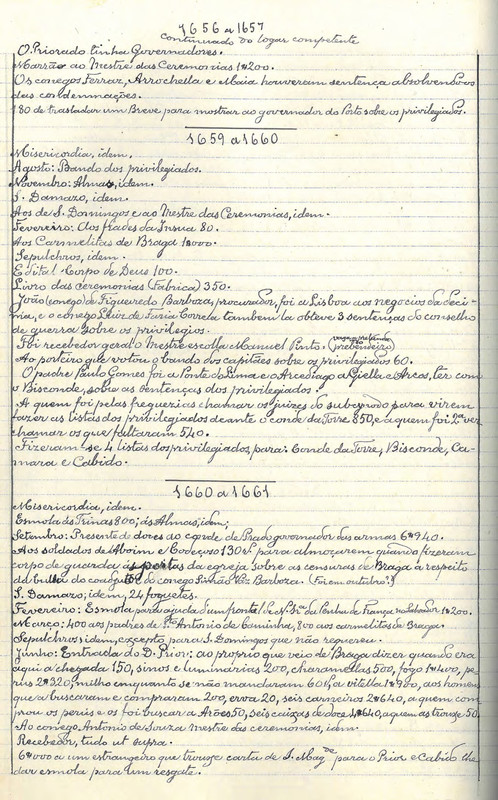 1656 a 1657
Continuado do logar competente
O Priorado tinha Governadores.
Marrão ao Mestre das Ceremonias 1$200.
Os conegos Ferraz, Arrochella e Maia houveram sentença absolvendo-os
das condemnações.
180 de trasladar um Breve para mostrar ao governador do Porto sobre os privilegiados.
1659 a 1660
Misericordia, idem.
Agosto: Bando dos privilegiados.
Novembro: Almas, idem.
S. Damazo, idem.
Aos de S. Domingos e ao Mestre das Ceremonias, idem.
Fevereiro: Aos frades da Insua 80.
Aos Carmelitas de Braga 1$000.
Sepulchros, idem.
Edital Corpo de Deus 100.
Livro das ceremonias (Fabrica) 350.
João (conego) de Figueiredo Barboza, procurador, foi a Lisboa aos negocios da deci-
ma, e o conego Luiz de Faria Correia tambem la obteve 3 sentenças do conselho
de guerra sobre os privilegios.
Foi recebedor geral o Mestre escolla Manuel Pinto. (prebendeiro)
Ao porteiro que votou o bando dos capitães sobre os privilegiados 60.
O padre Paulo Gomes foi a Ponte do Lima e o Arcediago a Giella e Arcos, ter com
o Bisconde, sobre as sentenças dos privilegiados.
A quem foi pelas freguezias chamar os juizes do subsynodo para virem
fazer as listas dos privilegiados deante o conde da Torre 850, e a quem foi 2ª vez
chamar os que faltaram 540.
Fizeram-se 4 listas dos privilegiados, para: Conde da Torre, Bisconde, Ca-
mara e Cabido.
1660 a 1661
Misericordia, idem.
Esmola ás Trinas 800; ás Almas, idem;
Setembro: Presente de doces ao conde de Prado governador das armas 6$940.
Aos soldados de Aboim e Codeçoso 130 rs. para almoçarem quando fizeram
corpo de guarda ás portas da egreja sobre as censuras de Braga a respeito
da bulla do coadjutor do conego Simão Vaz Barboza. (Foi em outubro?)
S. Damazo, idem, 24 foguetes.
Fevereiro: Esmola para ajuda d'um frontal de N. Srª da Penha de França, 1$200.
Março: 400 aos padres de Stº Antonio de Caminha, 800 aos carmelitas de Braga.
Sepulchros, idem, excepto para S. Domingos que não requereu.
Junho: Entrada do D. Prior: ao proprio que veio de Braga dizer quando era
aqui a chegada 150, sinos e luminarias 200, charamellas 500, fogo 1$400, pe-
rus 2$320, milho emquanto se não mandaram 60 rs, a vitella 1$900, aos homens
que a buscaram e compraram 200, erva 20, seis carneiros 2$640, a quem com-
prou os perús e os foi buscar a Arões 50, seis caixas de doce 4$640, a quem as trouxe 50.
Ao conego Antonio de Souza mestre das ceremonias, idem.
Recebedor, tudo ut supra.
6$000 a um estrangeiro que trouxe carta de S. Magde para o Prior e Cabido lhe
dar esmola para um resgate.